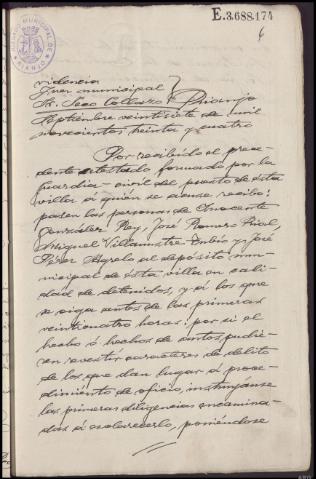 E.3.688.174
6
JUZGADO MUNICIPAL DE
RIANJO
videncia
Juez municipal
Sr. Seco Collazo } Rianjo
Septiembre veintisiete de mil
novecientos treinta y cuatro
Por recibido el prece-
dente atestado formado por la
guardia civil del puesto de ésta
villa a quien se acuse recibo:
pasen las personas de Inocente
González Rey, José Romero Rial,
Miguel Villamestre Rubio y José
Pérez Agrelo al depósito mu-
nicipal de ésta villa en cali-
dad de detenidos, y a los que
se oiga antes de las primeras
veinticuatro horas: por si el
hecho ó hechos de autos pudie-
en revestir caracteres de delito
de los que dan lugar a proce-
dimiento de oficio, instrúyanse
las primeras diligencias encamina-
das a esclarecerlo, poniéndose